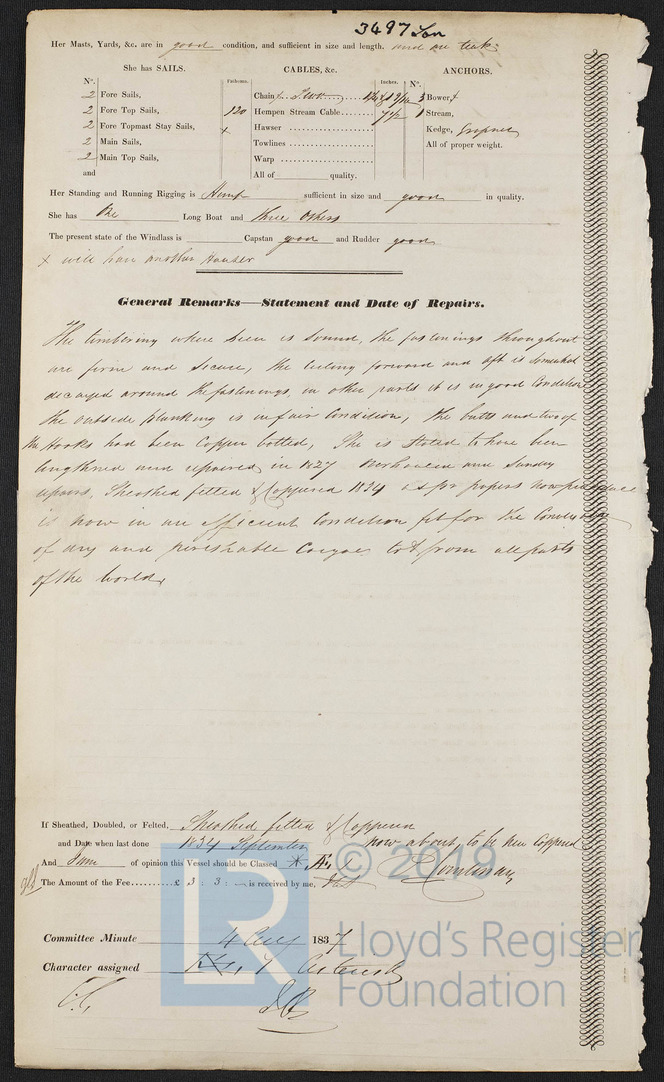 3497 Lon
Her Masts, Yards, &c. are in good condition, and sufficient in size and length. and are teak
She has SAILS.
CABLES, &c.
ANCHORS.
N°.
Fathoms.
Inches.
N°.
2 Fore Sails,
2 Fore Top Sails,
2 Fore Topmast Stay Sails,
2 Main Sails,
2 Main Top Sails,
and
Chain Two
120 Hempen Stream Cable 7 1/2
x Hawser
Towlines
Warp
All of quality.
3 Bower,
1 Stream,
Kedge,
All of proper weight.
Her Standing and Running Rigging is Hemp sufficient in size and good in quality.
She has One Long Boat and three others
The present state of the Windlass is Capstan good and Rudder good
x will have another Hawser
General Remarks—Statement and Date of Repairs.
The timbering where seen is sound, the fastenings throughout
are firm and secure, the ceiling forward and aft is somewhat
decayed around the fastenings, in other parts it is in good condition
the outside planking is in fair condition, the butts and two of
the Hooks had been Copper bolted, She is stated to have been
lengthened and repaired in 1827 and Sunday
repairs, Sheathed felted & Coppered 1834 as for papers now
is now in an efficient Condition fit for the Conveyance
of dry and perishable Cargoes to & from all parts
of the world.
If Sheathed, Doubled, or Felted, Sheathed felted & Coppered
and Date when last done 1834 September now about to be new Coppered
And I am of opinion this Vessel should be Classed
The Amount of the Fee £ 3 : 3 : – is received by me,
Committee Minute 4 Aug 1837
Character assigned
© 2019
LR
Lloyd's Register
Foundation